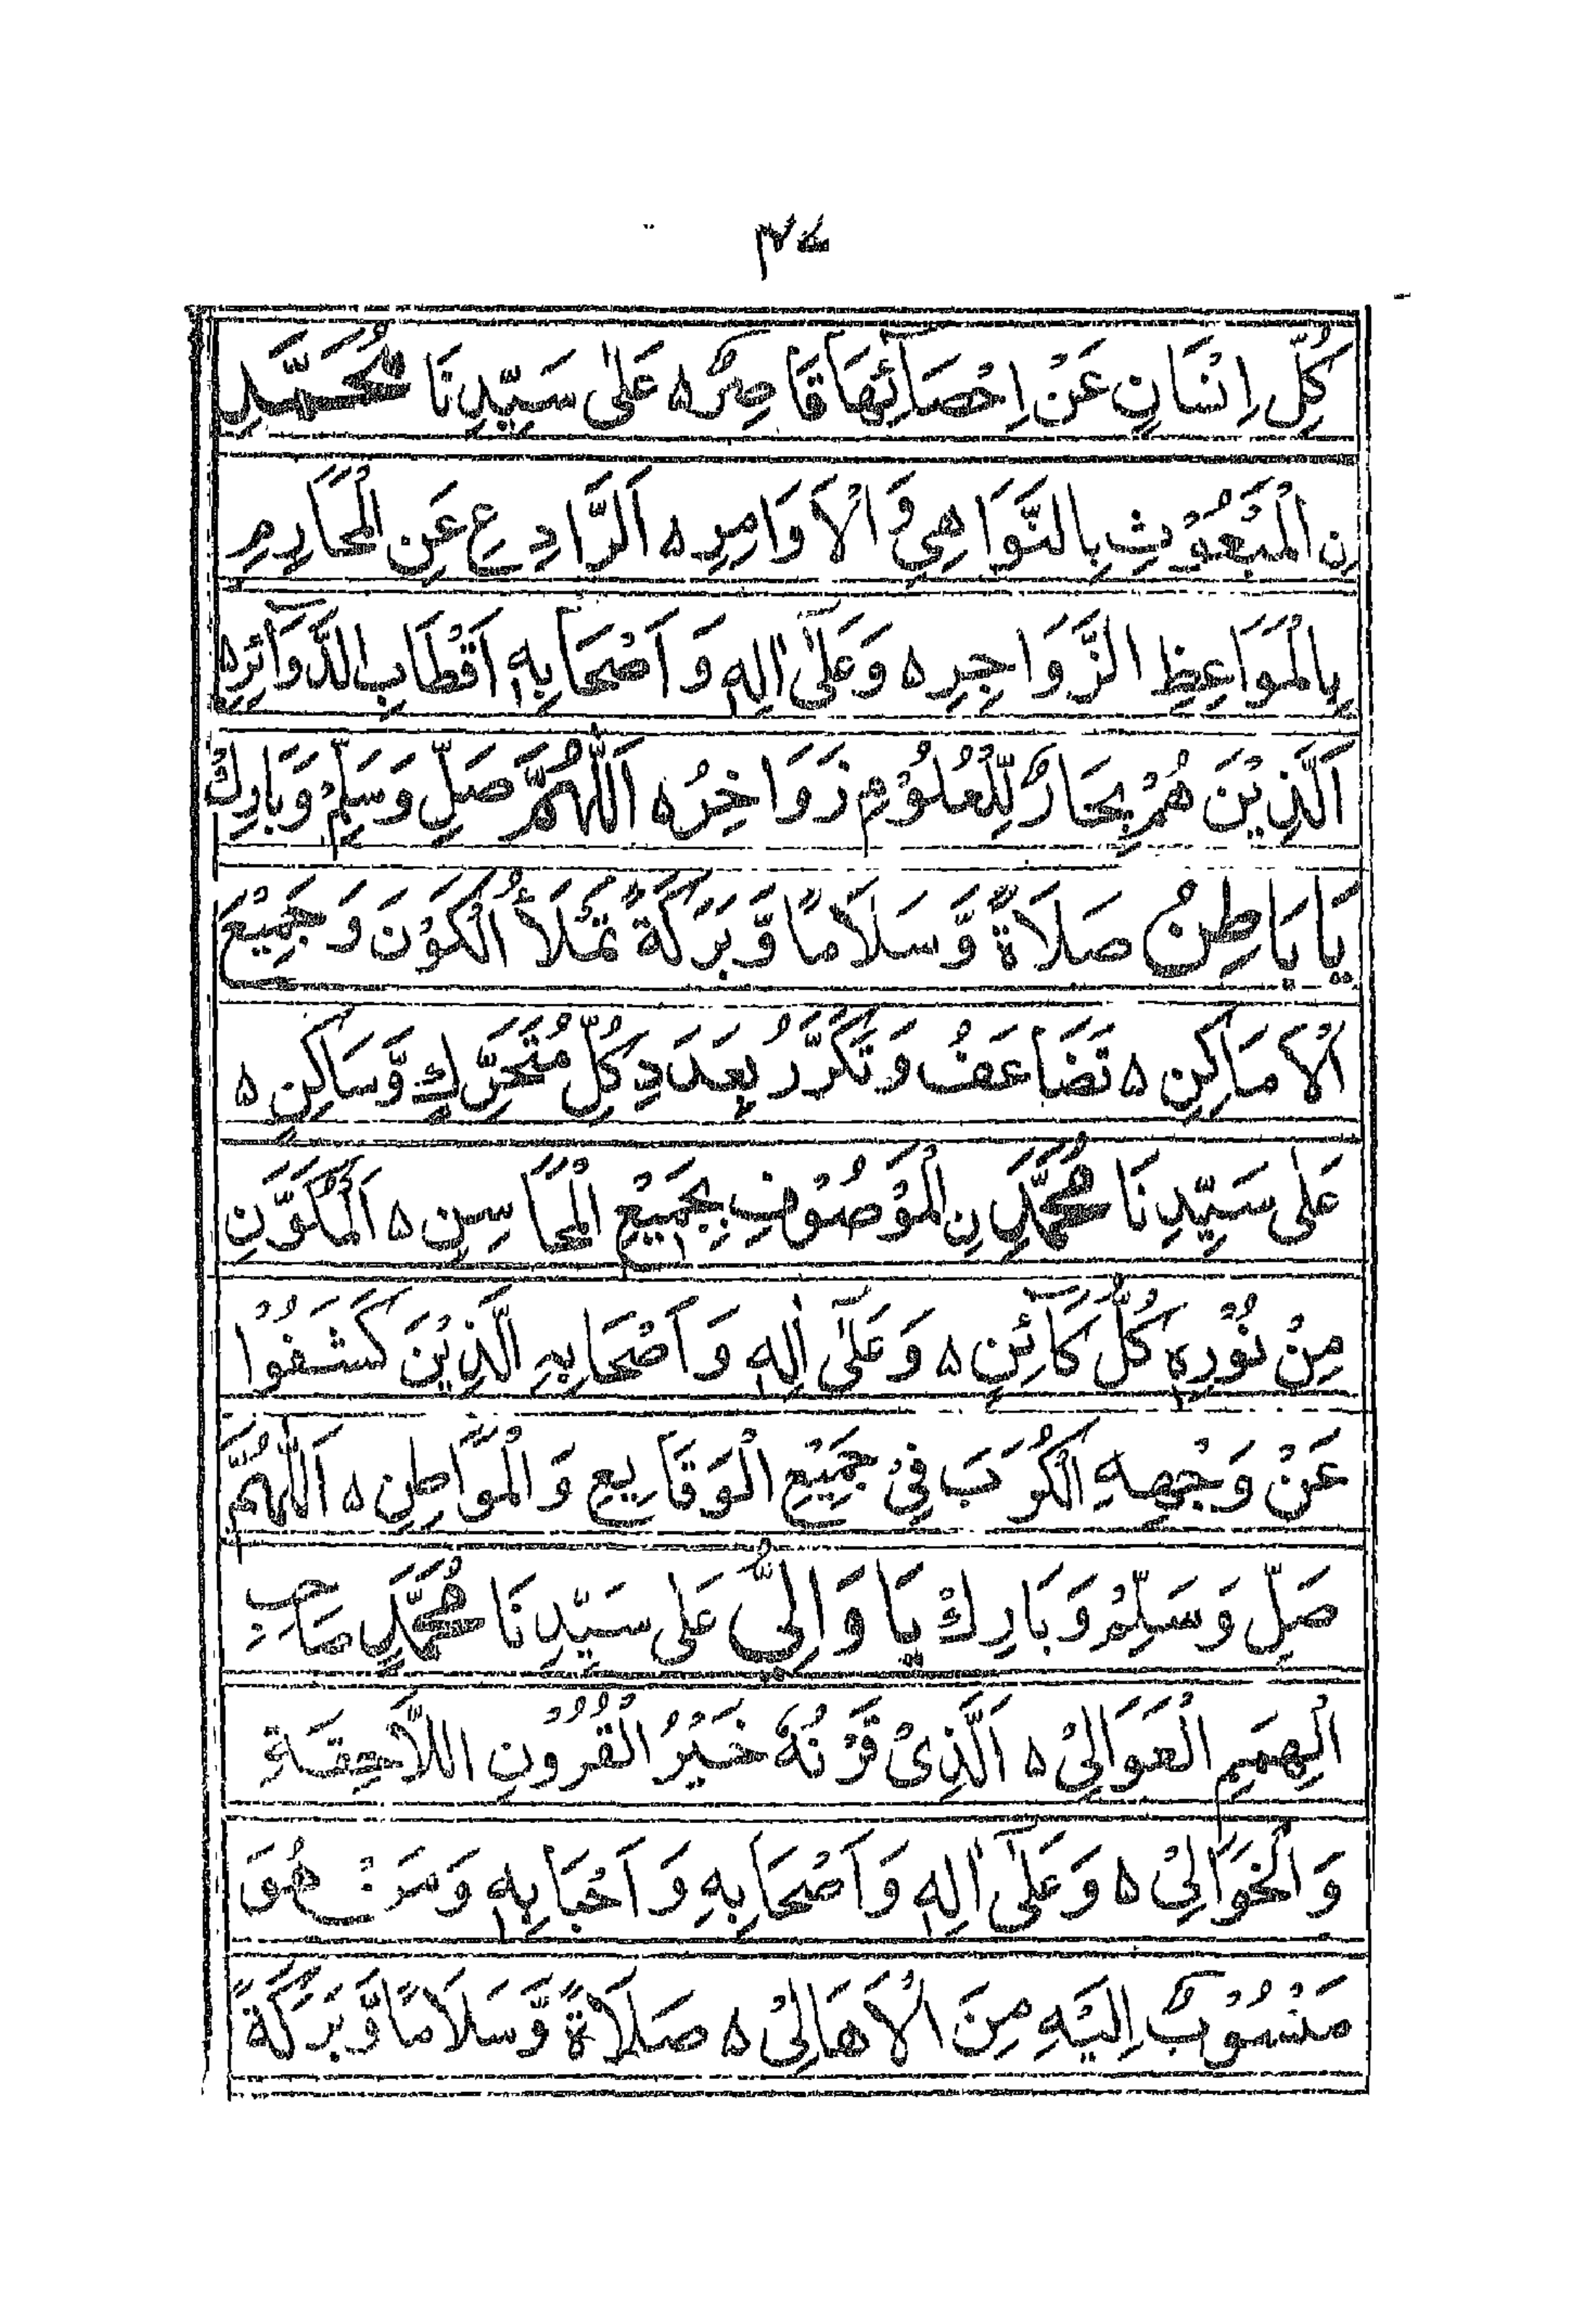 كُلِّ اِنْسَانٍ عَنْ اِحْصَآئِهَا قَاصِرٌ ه عَلٰى سَيِّدِنَا مُحَمَّدِ
نِ الْمَبْعُوْثِ بِالنَّوَاهِىْ وَالْاَوَامِرِ ه اَلرَّادِعِ عَنِ الْمَحَارِمِ
بِالْمَوَاعِظِ الزَّوَاجِرِ ه وَعَلٰٓى اٰلِهٖ وَاَصْحَابِهٖ اَقْطَابِ الدَّوَآئِرِ ه
اَلَّذِيْنَ هُمْ بِحَارٌ لِّلْعُلُوْمِ زَوَاخِرُ ه اَللّٰهُمَّ صَلِّ وَسَلِّمْ وَبَارِكْ
يَا بَاطِنُ صَلَاةً وَّسَلَامًا وَّبَرَكَةً تَمْلَأُ الْكَوْنَ وَجَمِيْعَ
الْاَمَاكِنِ ه تَضَاعَفُ وَتَكَرَّرُ بِعَدَدِ كُلِّ مُتَحَرِّكٍ وَّسَاكِنٍ ه
عَلٰى سَيِّدِنَا مُحَمَّدِ نِ الْمَوْصُوْفِ بِجَمِيْعِ الْمَحَاسِنِ ه اَلْمُكَوَّنِ
مِنْ نُوْرِهٖ كُلُّ كَآئِنٍ ه وَعَلٰٓى اٰلِهٖ وَاَصْحَابِهِ الَّذِيْنَ كَشَفُوْا
عَنْ وَجْهِهِ الْكُرَبَ فِىْ جَمِيْعِ الْوَقَايِعِ وَالْمَوَاطِنِ ه اَللّٰهُمَّ
صَلِّ وَسَلِّمْ وَبَارِكْ يَا وَالِىُّ عَلٰى سَيِّدِنَا مُحَمَّدٍ صَاحِبِ
الْهِمَمِ الْعَوَالِىْ ه اَلَّذِىْ قَرْنُهٗ خَيْرُ الْقُرُوْنِ اللَّاحِقَةِ
وَالْخَوَالِىْ ه وَعَلٰٓى اٰلِهٖ وَاَصْحَابِهِ وَاَحْبَابِهٖ وَمَنْ هُوَ
مَنْسُوْبٌ اِلَيْهِ مِنَ الْاَهَالِىْ ه صَلَاةً وَّسَلَامًا وَّبَرَكَةً